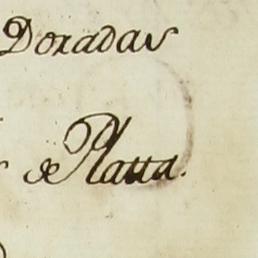 Doradas
de Platta.